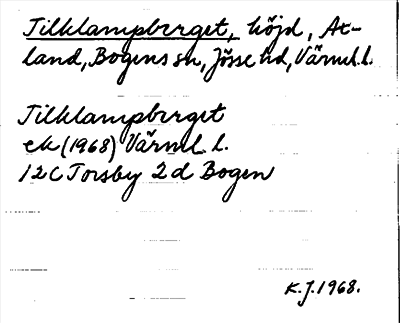 Tilklampberget, höjd, Ax-
land, Bogens sn, Jösse hd, Värml. l.
Tilklampberget
ek (1968) Värml. l.
12C Torsby 2d Bogen
K.J. 1968.